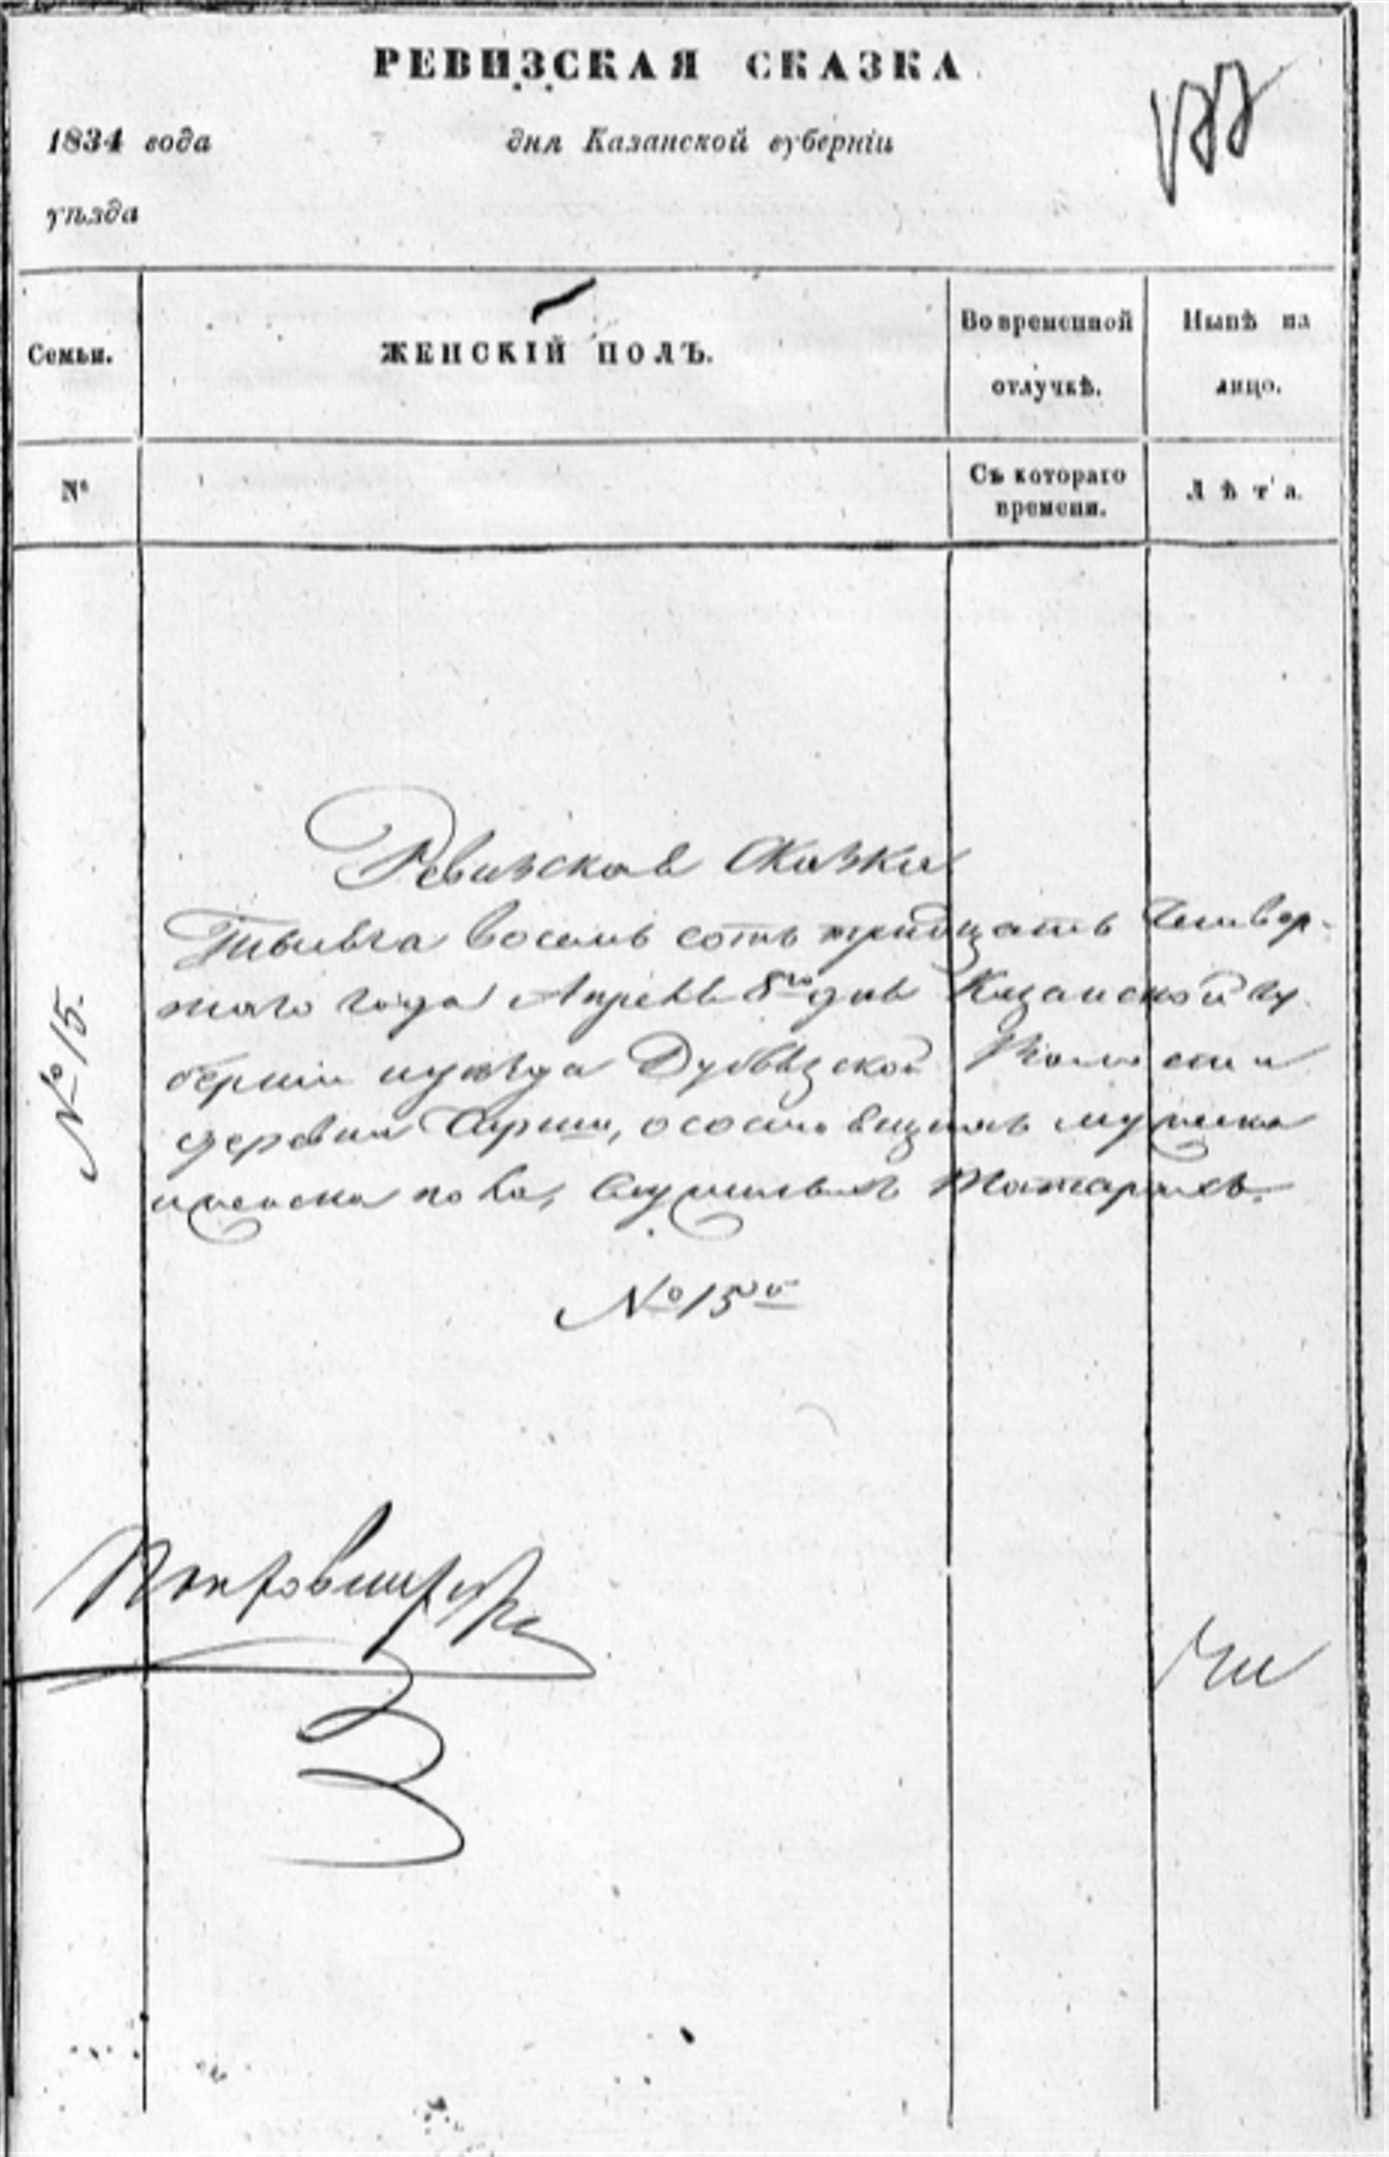 РЕВИЗСКАЯ СКАЗКА
1834 года дня Казанской губерніи
уѣзда
Семьи.
ЖЕНСКІЙ ПОЛЪ.
Во временной
отлучкѣ.
Нынѣ на
лицо.
№
Съ котораго
времени.
Лѣта.
Ревизская Сказка
Тысяча восемь сотъ тридцать Четвер-
таго года Апреля 8го дня Казанской гу
берніи уезда
деревни о состоящихъ мужеска
и женска пола, Служилыхъ Татарахъ.
№ 15й
№ 15.